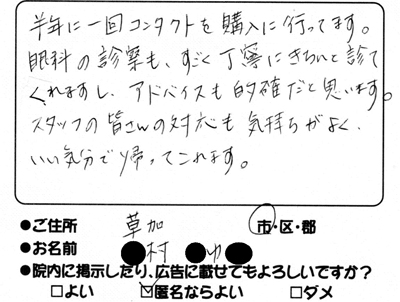 半年に一回コンタクトを購入に行ってます。
眼科の診察も、すごく丁寧にきちんと診て
くれますし、アドバイスも的確だと思います。
スタッフの皆さんの対応も気持ちがよく、
いい気分で帰ってこれます。
●ご住所 草加 市・区・郡
●お名前 ●村 ●ゆ●
●院内に掲示したり、広告に載せてもよろしいですか?
□よい ☑匿名ならよい □ダメ